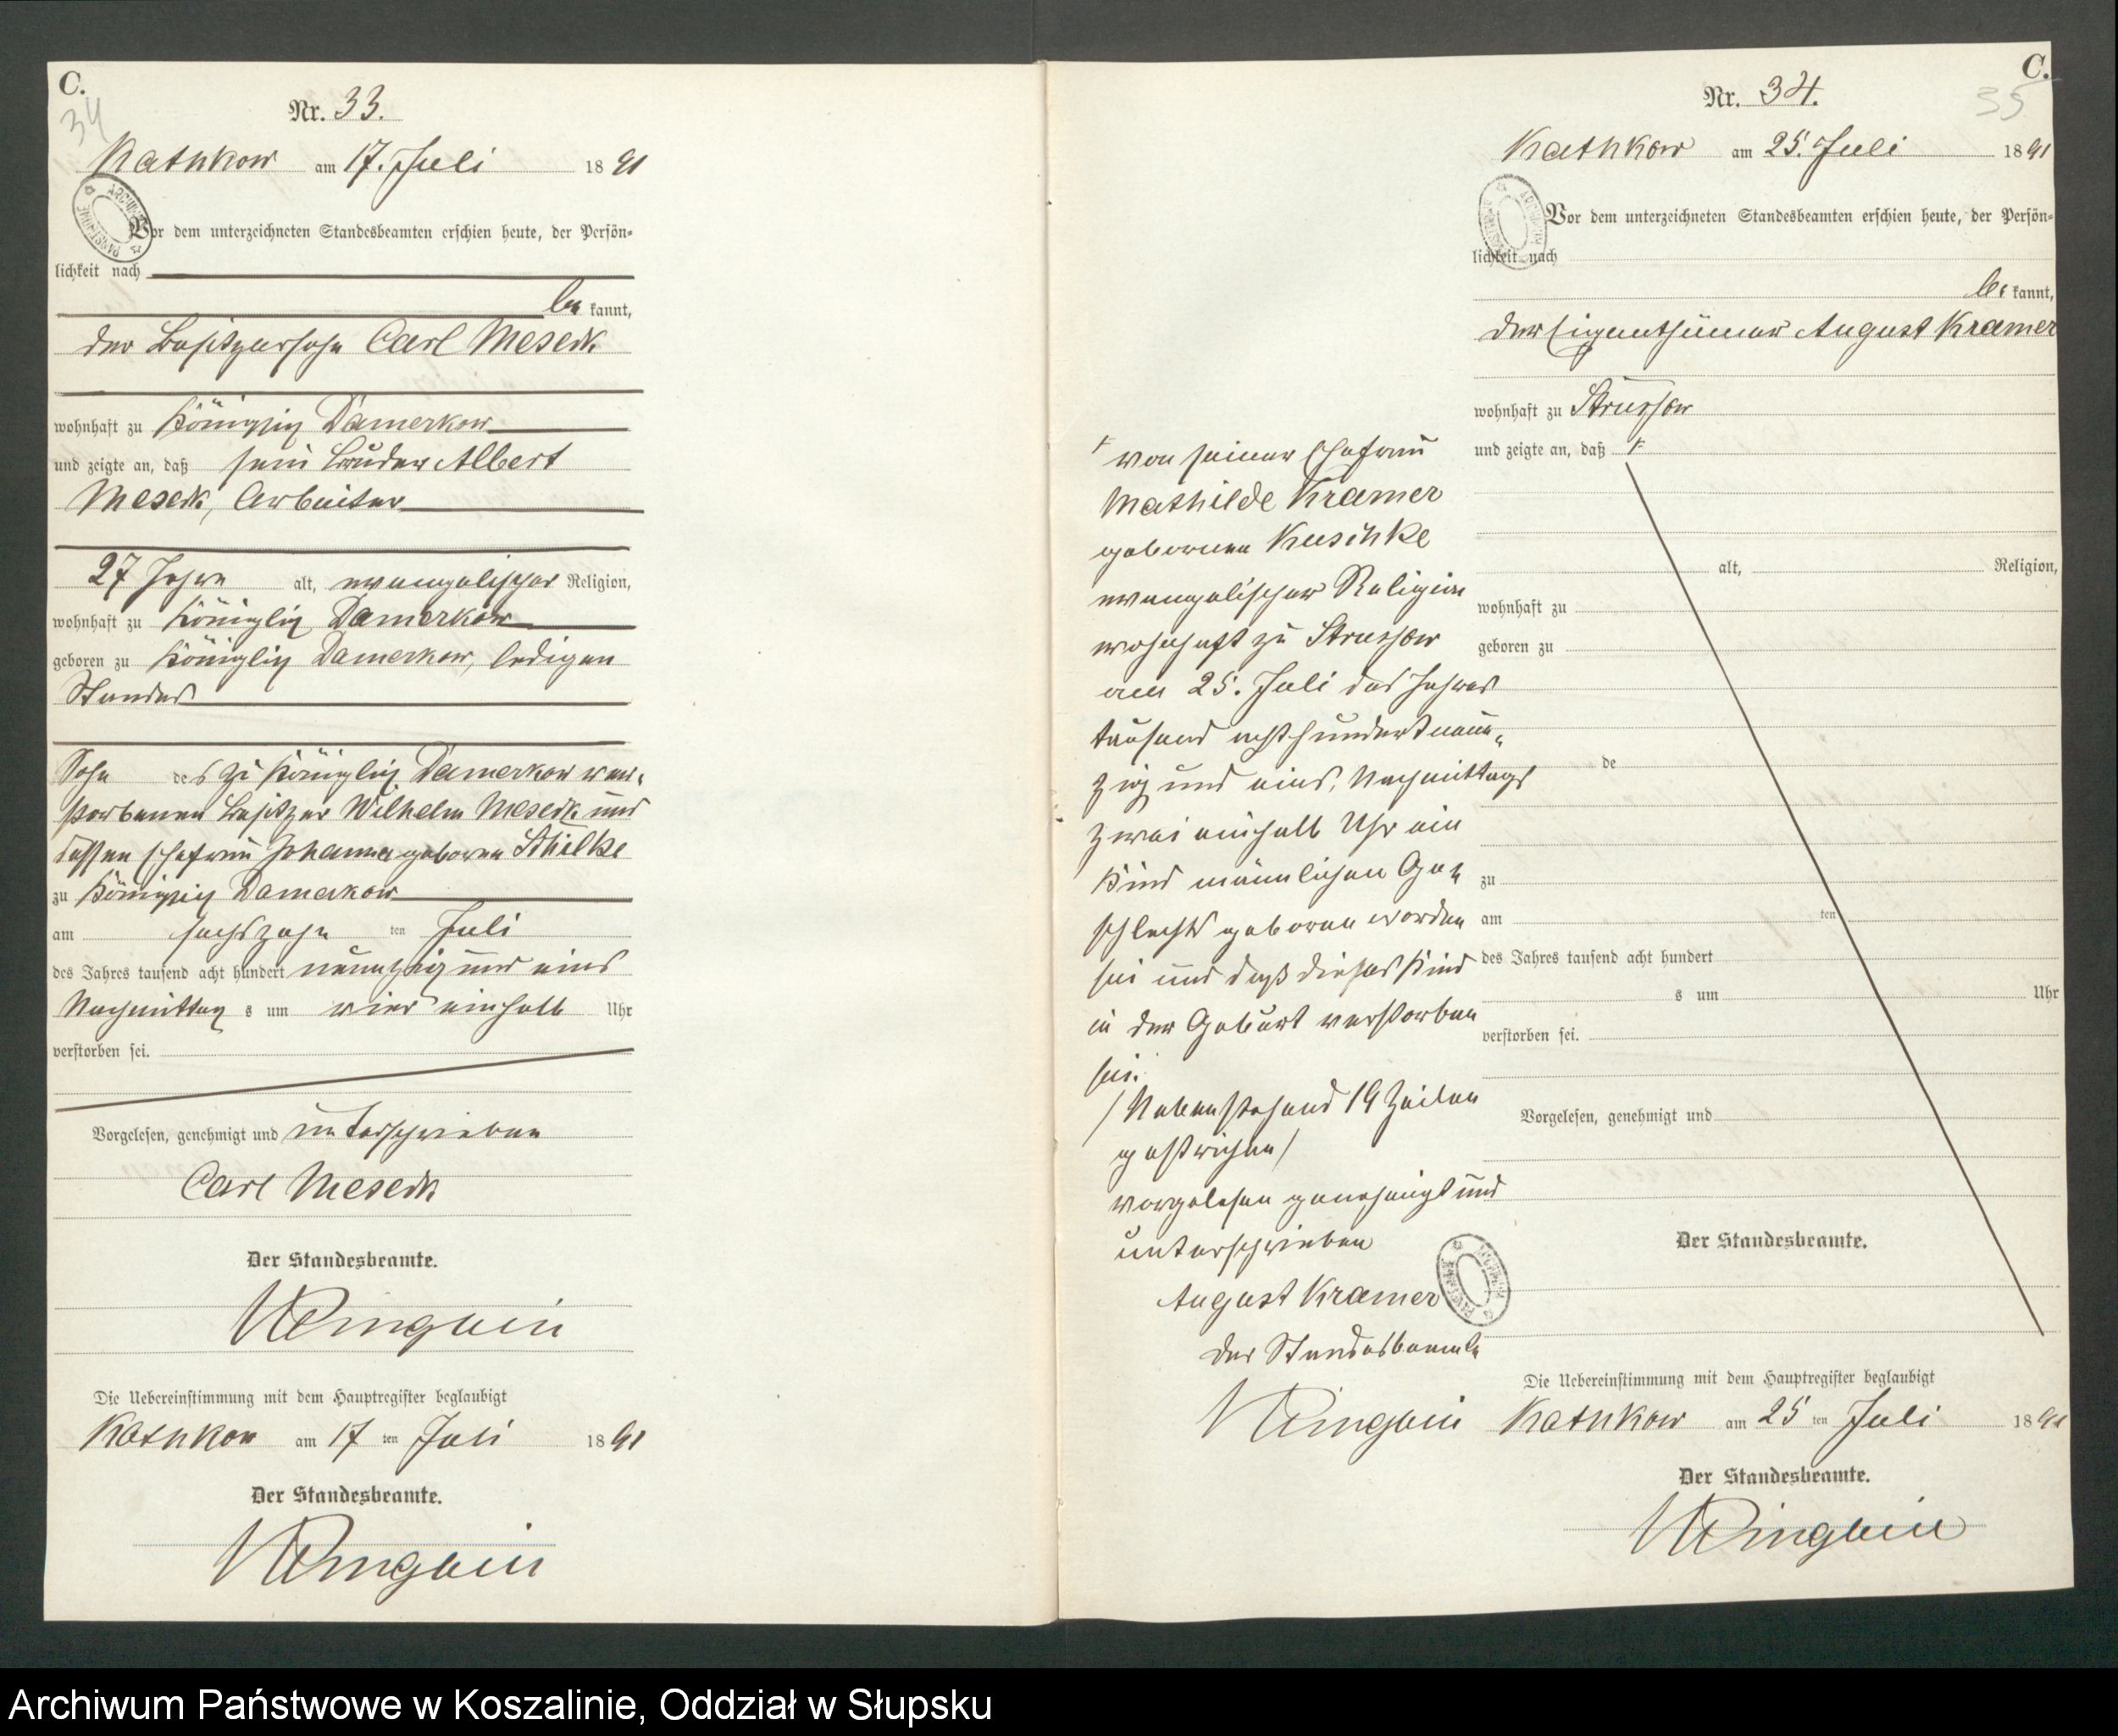 C.
34
Nr. 33.
Kathkow am 17. Juli 1891
Vor dem unterzeichneten Standesbeamten erschien heute, der Persön-
lichkeit nach
be kannt,
der Besitzersohn Carl Meseck
wohnhaft zu Königlich Damerkow
und zeigte an, daß sein Bruder Albert
Meseck, Arbeiter
27 Jahre alt, evangelischer Religion,
wohnhaft zu Königlich Damerkow
geboren zu Königlich Damerkow, ledigen
Standes
Sohn des zu Königlich Damerkow ver-
storbenen Besitzer Wilhelm Meseck und
dessen Ehefrau Johanna geborene Stielke
zu Königlich Damerkow
am sechszehn ten Juli
des Jahres tausend acht hundert neunzig und eins
Nachmittag s um vier einhalb Uhr
verstorben sei.
Vorgelesen, genehmigt und unterschrieben
Carl Meseck
Der Standesbeamte.
Die Uebereinstimmung mit dem Hauptregister beglaubigt
Kathkow am 17 ten Juli 1891
Der Standesbeamte.
C.
35
Nr. 34.
Kathkow am 25. Juli 1891
Vor dem unterzeichneten Standesbeamten erschien heute, der Persön-
lichkeit nach
be kannt,
der Eigenthümer August Kramer
wohnhaft zu Strussow
und zeigte an, daß
von seiner Ehefrau
Mathilde Kramer
geborenen Kuschke
evangelischer Religion
wohnhaft zu Strussow
am 25. Juli des Jahres
tausend achthundert neun-
zig und eins, Nachmittags
zwei einhalb Uhr ein
Kind männlichen Ge-
schlechts geboren worden
sei und daß dieses Kind
in der Geburt verstorben
sei.
/Nebenstehend 19 Zeilen
gestrichen/
vorgelesen genehmigt und
unterschrieben
August Kramer
Der Standesbeamte
alt, Religion,
wohnhaft zu
geboren zu
de
zu
am ten
des Jahres tausend acht hundert
s um Uhr
verstorben sei.
Vorgelesen, genehmigt und
Der Standesbeamte.
Die Uebereinstimmung mit dem Hauptregister beglaubigt
Kathkow am 25 ten Juli 1891
Der Standesbeamte.
Archiwum Państwowe w Koszalinie, Oddział w Słupsku